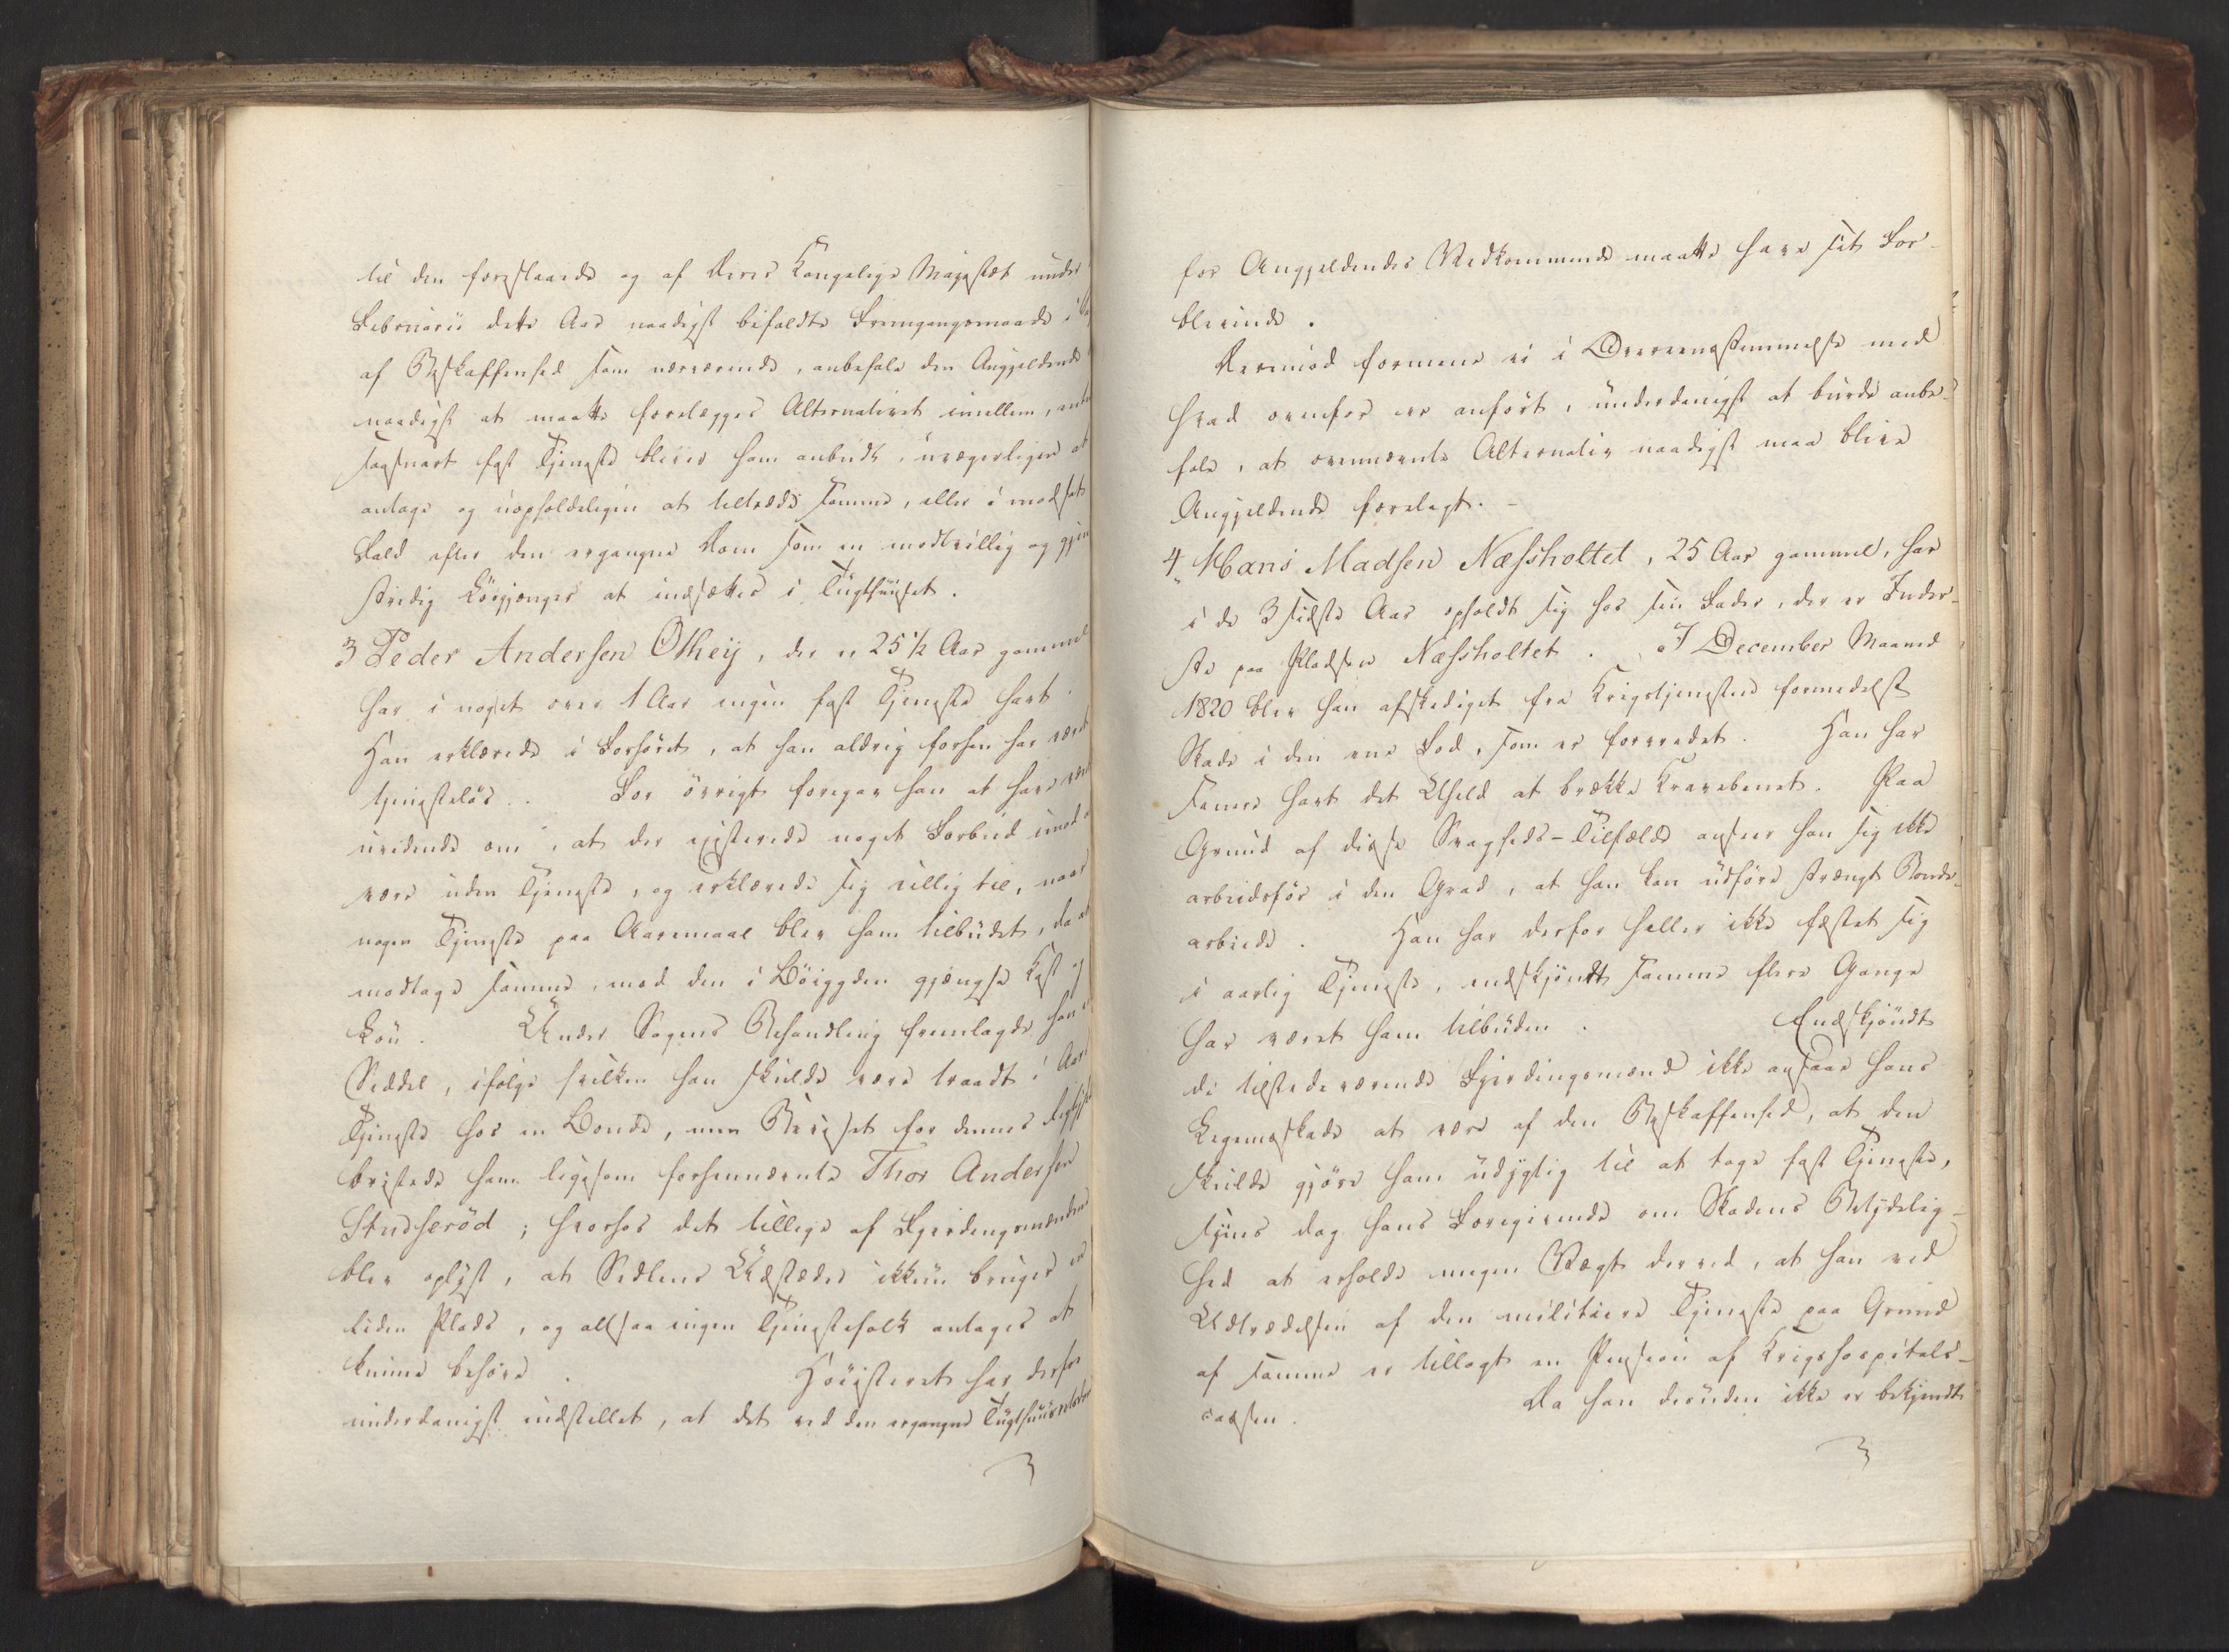 til den foreslaaede og af Deres Kongelige Majestæt under
Februarii dette Aar naadigst bifaldte Fremgangsmaade i
af Beskaffenhed som nærværende, anbefale den Angjeldende
naadigst at maatte forelægges Alternativet imellem,
saasnart fast Tjeneste bliver ham anbudt, uvægerligen at
antage og uopholdeligen at tiltræde samme, eller i modsat
Fald efter den ergangne Dom som en modvillig og gjen¬
stridig Løsgjænger at indsættes i Tugthuuset.
3 Peder Andersen Otheij, der er 25 1/2 Aar gammel
har i noget over 1 Aar ingen fast Tjeneste havt.
Han erklærede i Forhøret, at han aldrig forhen har været
tjenesteløs. For øvrigt foregav han at have været
uvidende om, at der existerede noget Forbud imod at
være uden Tjeneste, og erklærede sig villig til, naar
nogen Tjeneste paa Aaremaal blev ham tilbudet, da at
modtage samme, mod den i Bøigden gjængse Kost og
Løn. Under Sagens Behandling fremlagde han en
Seddel, ifølge hvilken han skulde være traadt i Aars
Tjeneste hos en Bonde, men Beviset for dennes Rigtighed
bristede ham ligesom forhennævnte Thor Andersen
Studserød; hvorhos det tillige af Fjerdingsmændene
blev oplyst, at Sedlens Udstæder ikkun bruger en
liden Plads, og altsaa ingen Tjenestefolk antages at
kunne behøve. Høiesteret har derfor
underdanigst indstillet, at det ved den ergangne Tugthuus
for Angjeldendes Vedkommende maatte have sit For¬
blivende.
Derimod formene vi i Overeensstemmelse med
hvad ovenfor er anført, underdanigst at burde anbe¬
fale, at ovennævnte Alternativ naadigst maa blive
Angjeldende forelagt. -
4, Hans Madsen Næssholtet, 25 Aar gammel, har
i de 3 sidste Aar opholdt sig hos sin Fader, der er Inder¬
ste paa Pladsen Næssholtet. I December Maaned
1820 blev han afskediget fra Krigstjenesten formedelst
Skade i den ene Fod, som er forvredet. Han har
senere havt det Uheld at brække Kravebenet. Paa
Grund af disse Svagheds-Tilfælde anseer han sig ikke
arbeidsfør i den Grad, at han kan udføre strængt Bonde¬
arbeide. Han har derfor heller ikke fæstet sig
i aarlig Tjeneste, endskjøndt samme flere Gange
har været ham tilbuden. Endskjøndt
de tilstedeværende Fjerdingsmænd ikke ansaae hans
Legemsskade at være af den Beskaffenhed, at den
skulde gjøre ham udygtig til at tage fast Tjeneste,
synes dog hans Foregivende om Skadens Betydelig¬
hed at erholde megen Vægt derved, at han ved
Udtrædelsen af den militaire Tjeneste paa Grund
af samme er tillagt en Pension af Krigshospitals¬
cassen. Da han desuden ikke er bekjendt